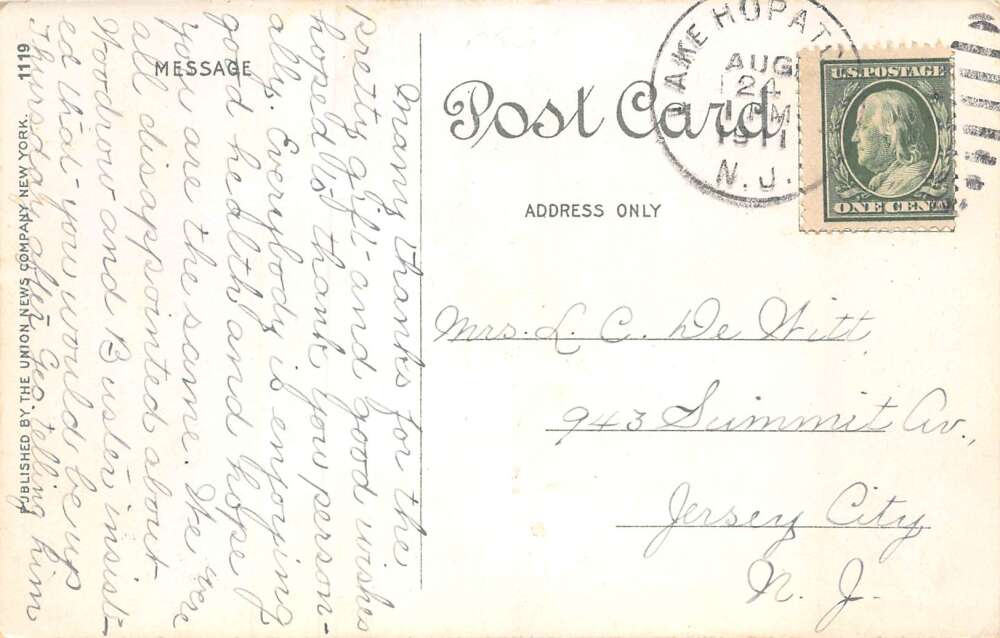 1119
PUBLISHED BY THE UNION NEWS COMPANY NEW YORK.
MESSAGE
Many thanks for the
pretty gift and good wishes
hosed to thank you person-
ally. Everybody is enjoying
good health and hope
you are the same. We were
all disappointed about
Woodrow and Buster insist-
ed that you would be up
Thursday after Geo. telling him
Post Card
ADDRESS ONLY
LAKE HOPATC
AUG
24
PM
1911
N.J.
U.S. POSTAGE
ONE CENT
Mrs. L. C. De Witt
943 Summit Av.,
Jersey City
N. J.